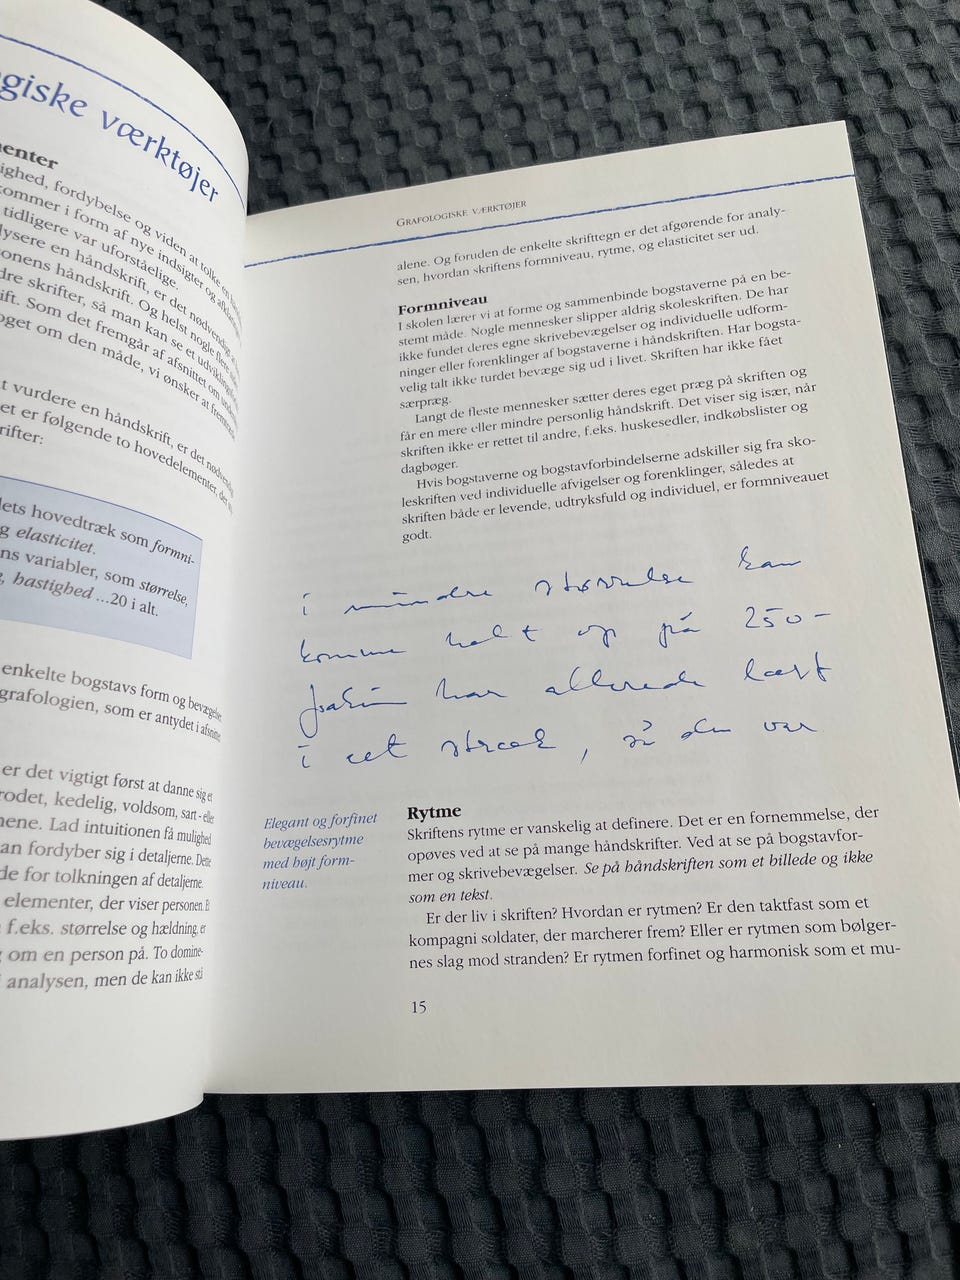 giske værktøjer
enter
ighed, fordybelse og viden at tolke en
ommer i form af nye indsigter og
tidligere var uforståelige.
lysere en håndskrift, er det nødvendigt
onens håndskrift. Og helst nogle flere
dre skrifter, så man kan se et
ift. Som det fremgår af afsnittet om
oget om den måde, vi ønsker at
t vurdere en håndskrift, er det
et er følgende to hovedelementer, der
rifter:
lets hovedtræk som formni-
g elasticitet.
ns variabler, som størrelse,
, hastighed ...20 i alt.
enkelte bogstavs form og
grafologien, som er antydet i
er det vigtigt først at danne sig et
rodet, kedelig, voldsom, sart - eller
nene. Lad intuitionen få mulighed
an fordyber sig i detaljerne. Dette
de for tolkningen af detaljerne.
elementer, der viser personen.
f.eks. størrelse og hældning,
om en person på. To domine-
analysen, men de kan ikke
GRAFOLOGISKE VÆRKTØJER
alene. Og foruden de enkelte skrifttegn er det afgørende for analy-
sen, hvordan skriftens formniveau, rytme, og elasticitet ser ud.
Formniveau
I skolen lærer vi at forme og sammenbinde bogstaverne på en be-
stemt måde. Nogle mennesker slipper aldrig skoleskriften. De har
ikke fundet deres egne skrivebevægelser og individuelle udform-
ninger eller forenklinger af bogstaverne i håndskriften. Har bogsta-
velig talt ikke turdet bevæge sig ud i livet. Skriften har ikke fået
særpræg.
Langt de fleste mennesker sætter deres eget præg på skriften og
får en mere eller mindre personlig håndskrift. Det viser sig især, når
skriften ikke er rettet til andre, f.eks. huskesedler, indkøbslister og
dagbøger.
Hvis bogstaverne og bogstavforbindelserne adskiller sig fra sko-
leskriften ved individuelle afvigelser og forenklinger, således at
skriften både er levende, udtryksfuld og individuel, er formniveauet
godt.
i mindre størrelse kan
komme helt op på 250-
Joakim har allerede læst
i eet stræk, så den var
Elegant og forfinet
bevægelsesrytme
med højt form-
niveau.
Rytme
Skriftens rytme er vanskelig at definere. Det er en fornemmelse, der
opøves ved at se på mange håndskrifter. Ved at se på bogstavfor-
mer og skrivebevægelser. Se på håndskriften som et billede og ikke
som en tekst.
Er der liv i skriften? Hvordan er rytmen? Er den taktfast som et
kompagni soldater, der marcherer frem? Eller er rytmen som bølger-
nes slag mod stranden? Er rytmen forfinet og harmonisk som et mu-
15